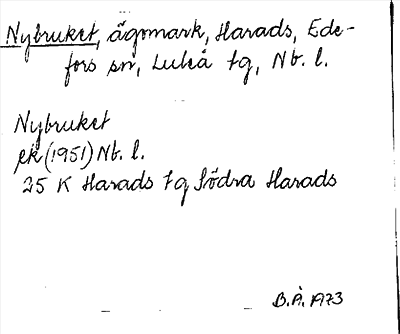 Nybruket, ägomark, Harads, Ede-
fors sn, Luleå tg, Nb. l.
Nybruket
ek (1951) Nb. l.
25 K Harads tg Södra Harads
B.Å. 1973